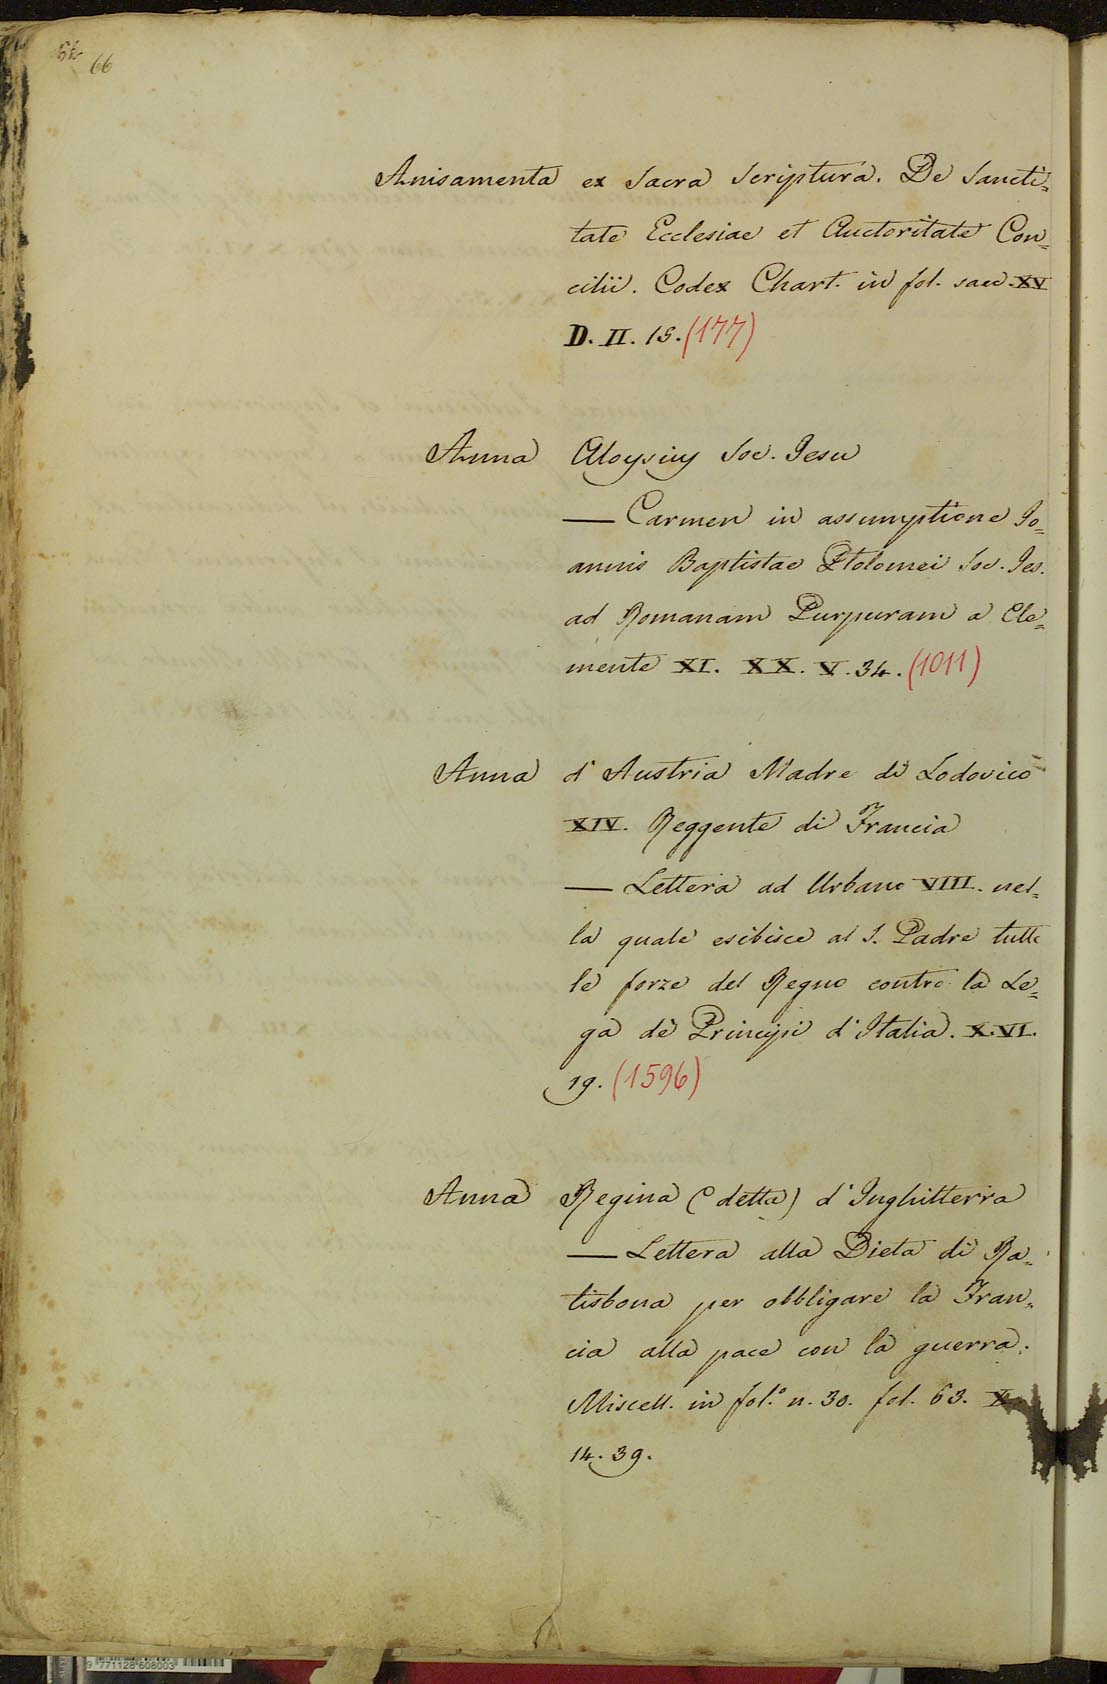 66
Anisamenta ex Sacra Scriptura. De Sancti=
tate Ecclesiae et Auctoritate Con=
cilii. Codex Chart. in fol. saec. XV
D. II. 15. (177)
Anna Aloysius Soc. Jesu
— Carmen in assumptione Jo=
annis Baptistae Ptolomei Soc. Jes.
ad Romanam Purpuram a Cle=
mente XI. XX. V. 34. (1011)
Anna d'Austria Madre di Lodovico
XIV. Reggente di Francia
— Lettera ad Urbano VIII. nel=
la quale esibisce al S. Padre tutte
le forze del Regno contro la Le=
ga de Principi d'Italia. X. VI.
19. (1596)
Anna Regina (o detta) d'Inghilterra
— Lettera alla Dieta di Ra=
tisbona per obbligare la Fran=
cia alla pace con la guerra.
Miscell. in fol.º n. 30. fol. 63. X
14. 39.
9 771128 608003